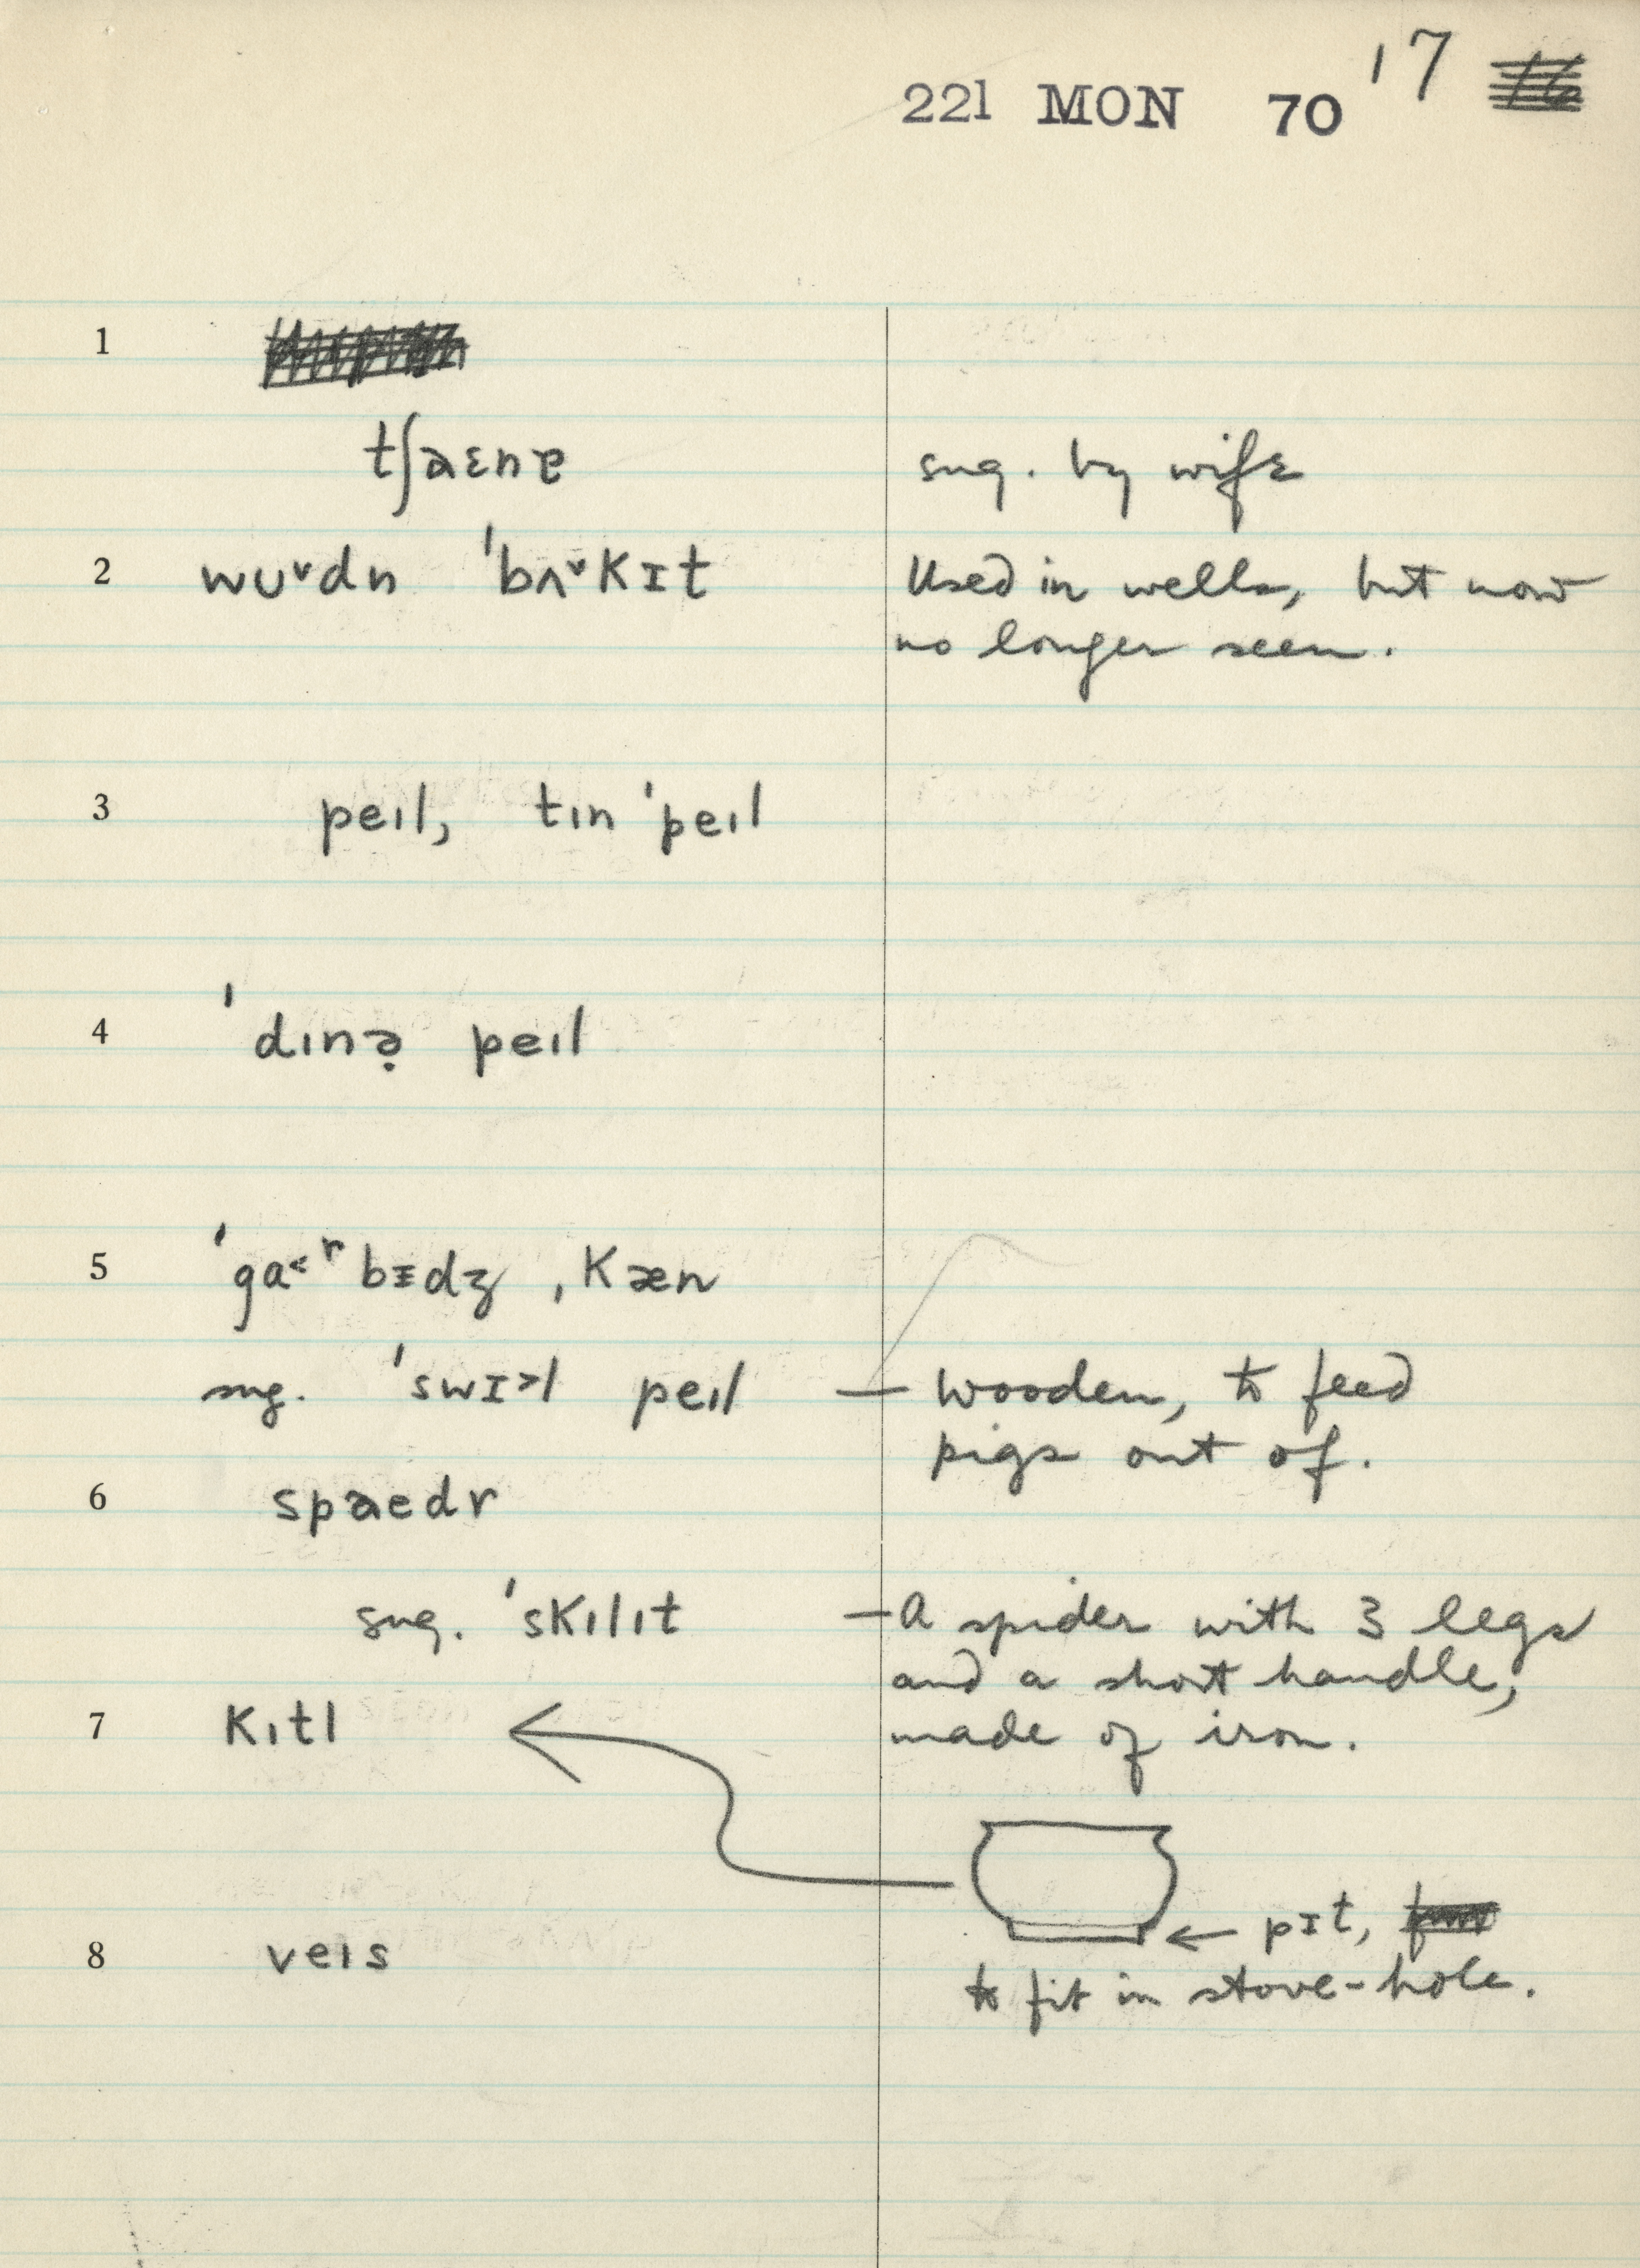 221 MON 70 '7
1
tʃaɛnɐ sug. by wife
2 wʊ˅dn ˈbʌ˅kɪt Used in wells, but now
no longer seen.
3 peıl, tın ˈpeıl
4 ˈdınə̣ peıl
5 ˈga˂ʳbᵻdʒ ˌkæn
sug. ˈswɪ˃l peıl — wooden, to feed
pigs out of.
6 spaedr
sug. ˈskılıt — A spider with 3 legs
and a short handle,
made of iron.
7 kıtl
← pɪt,
8 veıs
to fit in stove-hole.